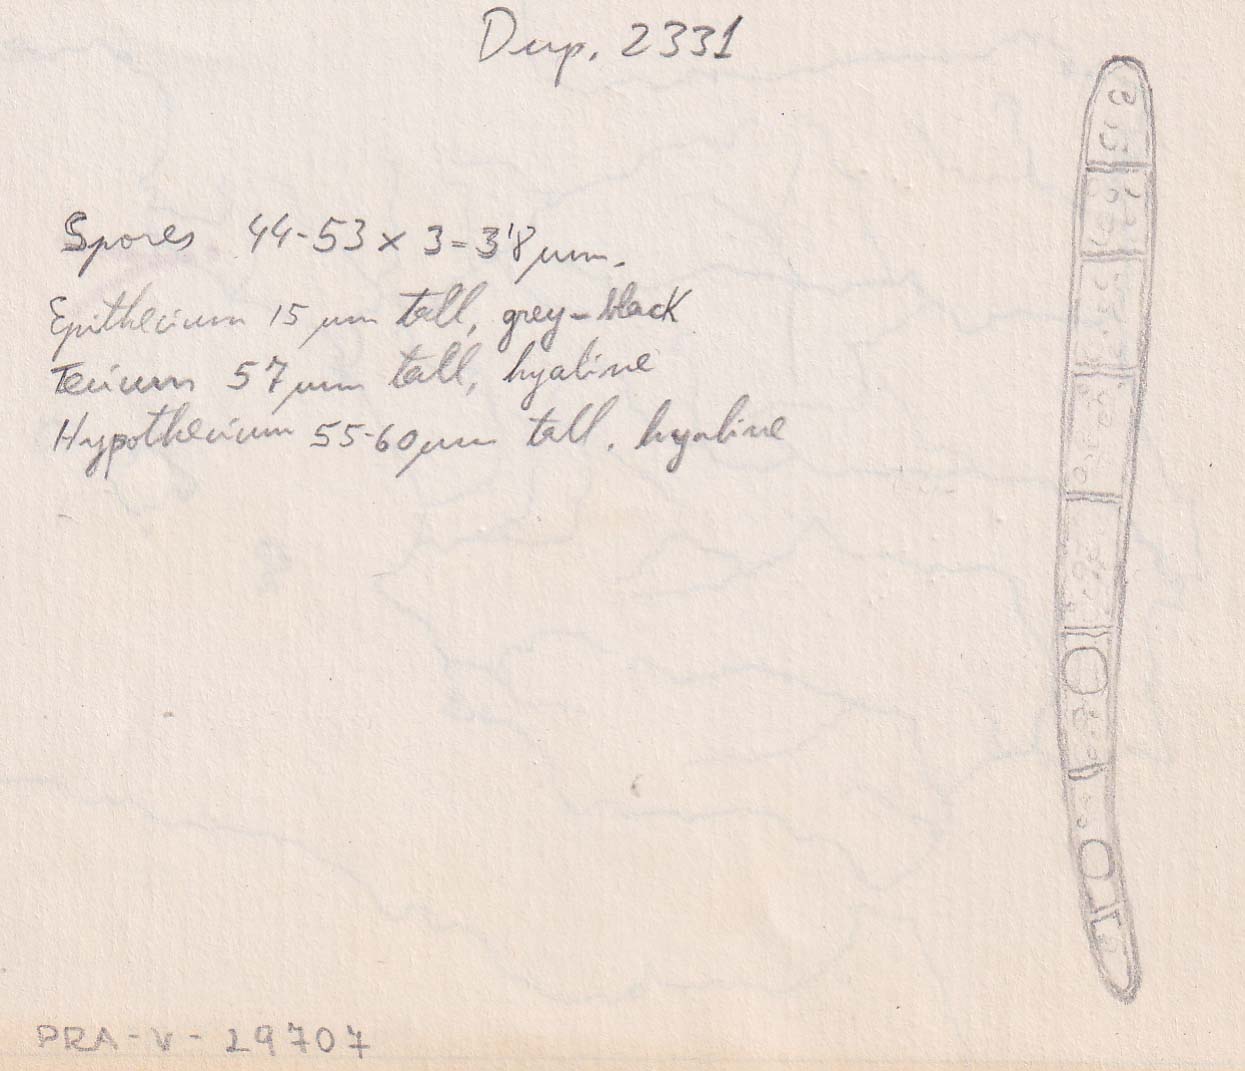 Dup. 2331
Spores 44-53 x 3-3'8 µm.
Epithecium 15 µm tall, grey-black
Tecium 57 µm tall, hyaline
Hypothecium 55-60 µm tall. hyaline
PRA-V-29707